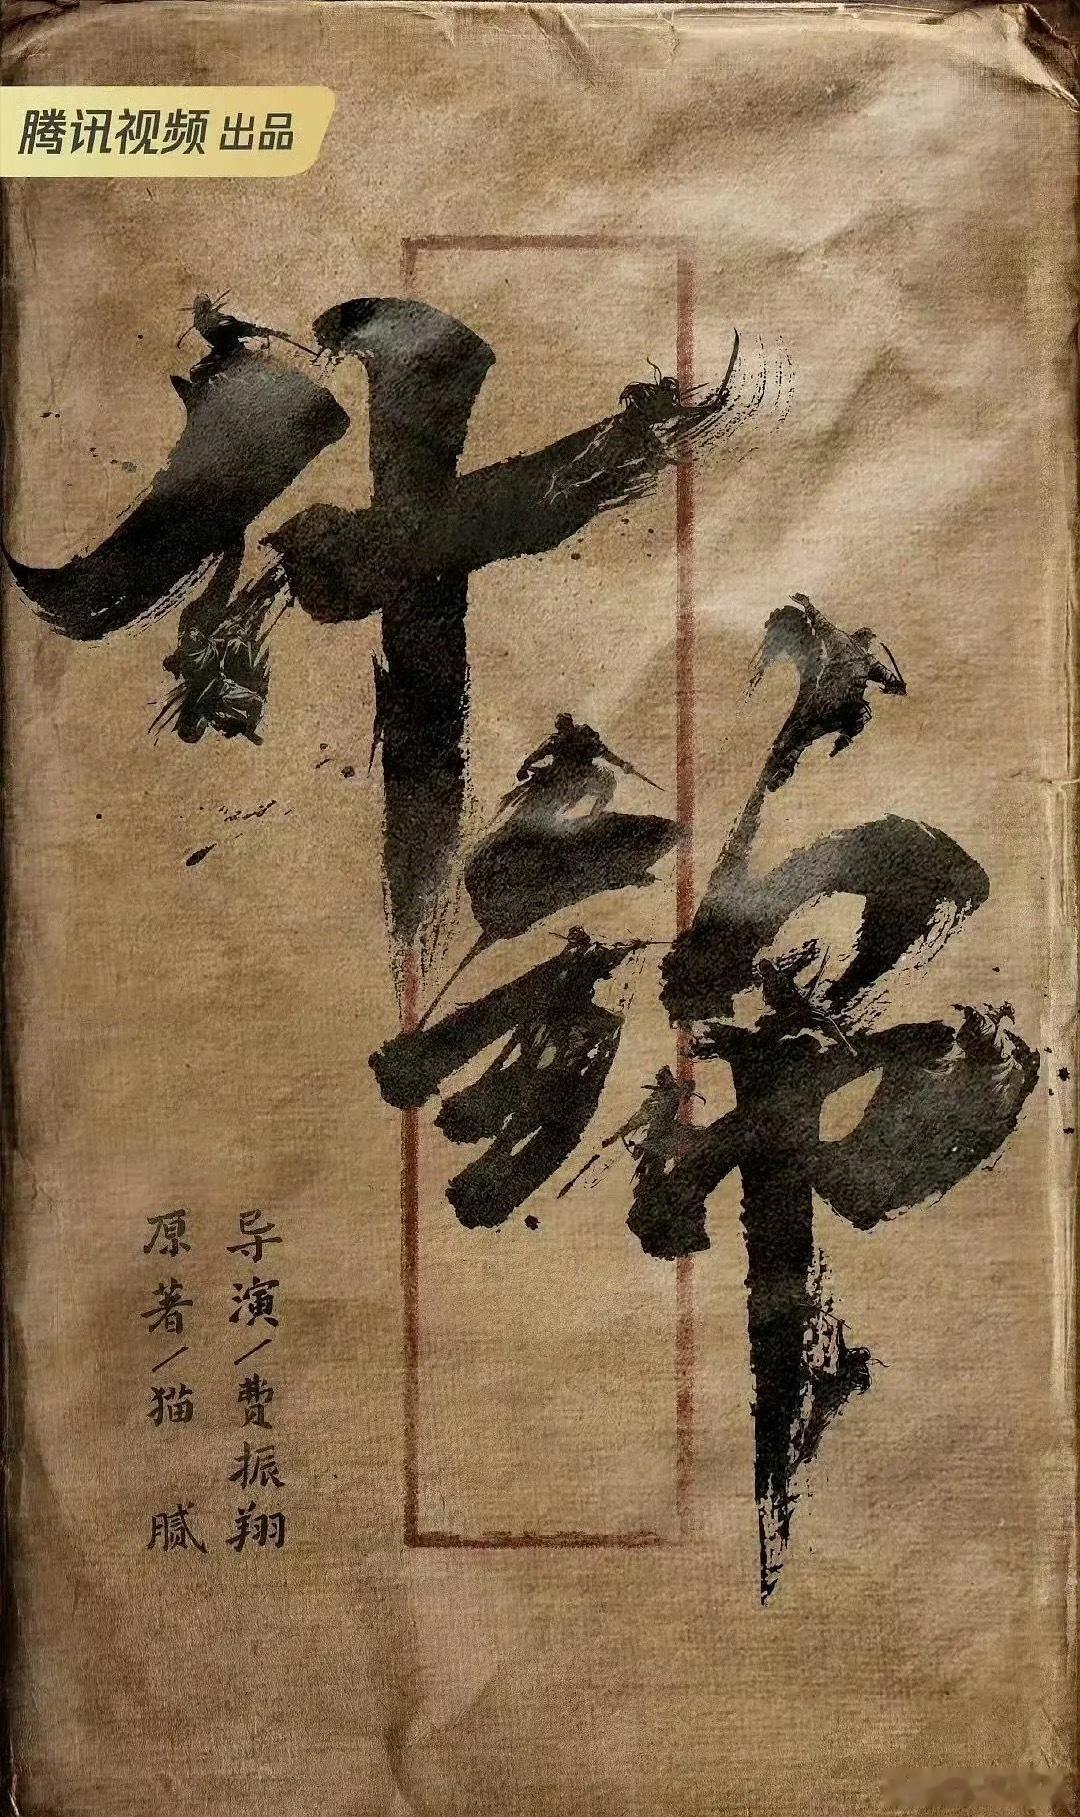 腾讯视频 出品
什锦
导演/费振翔
原著/猫腻